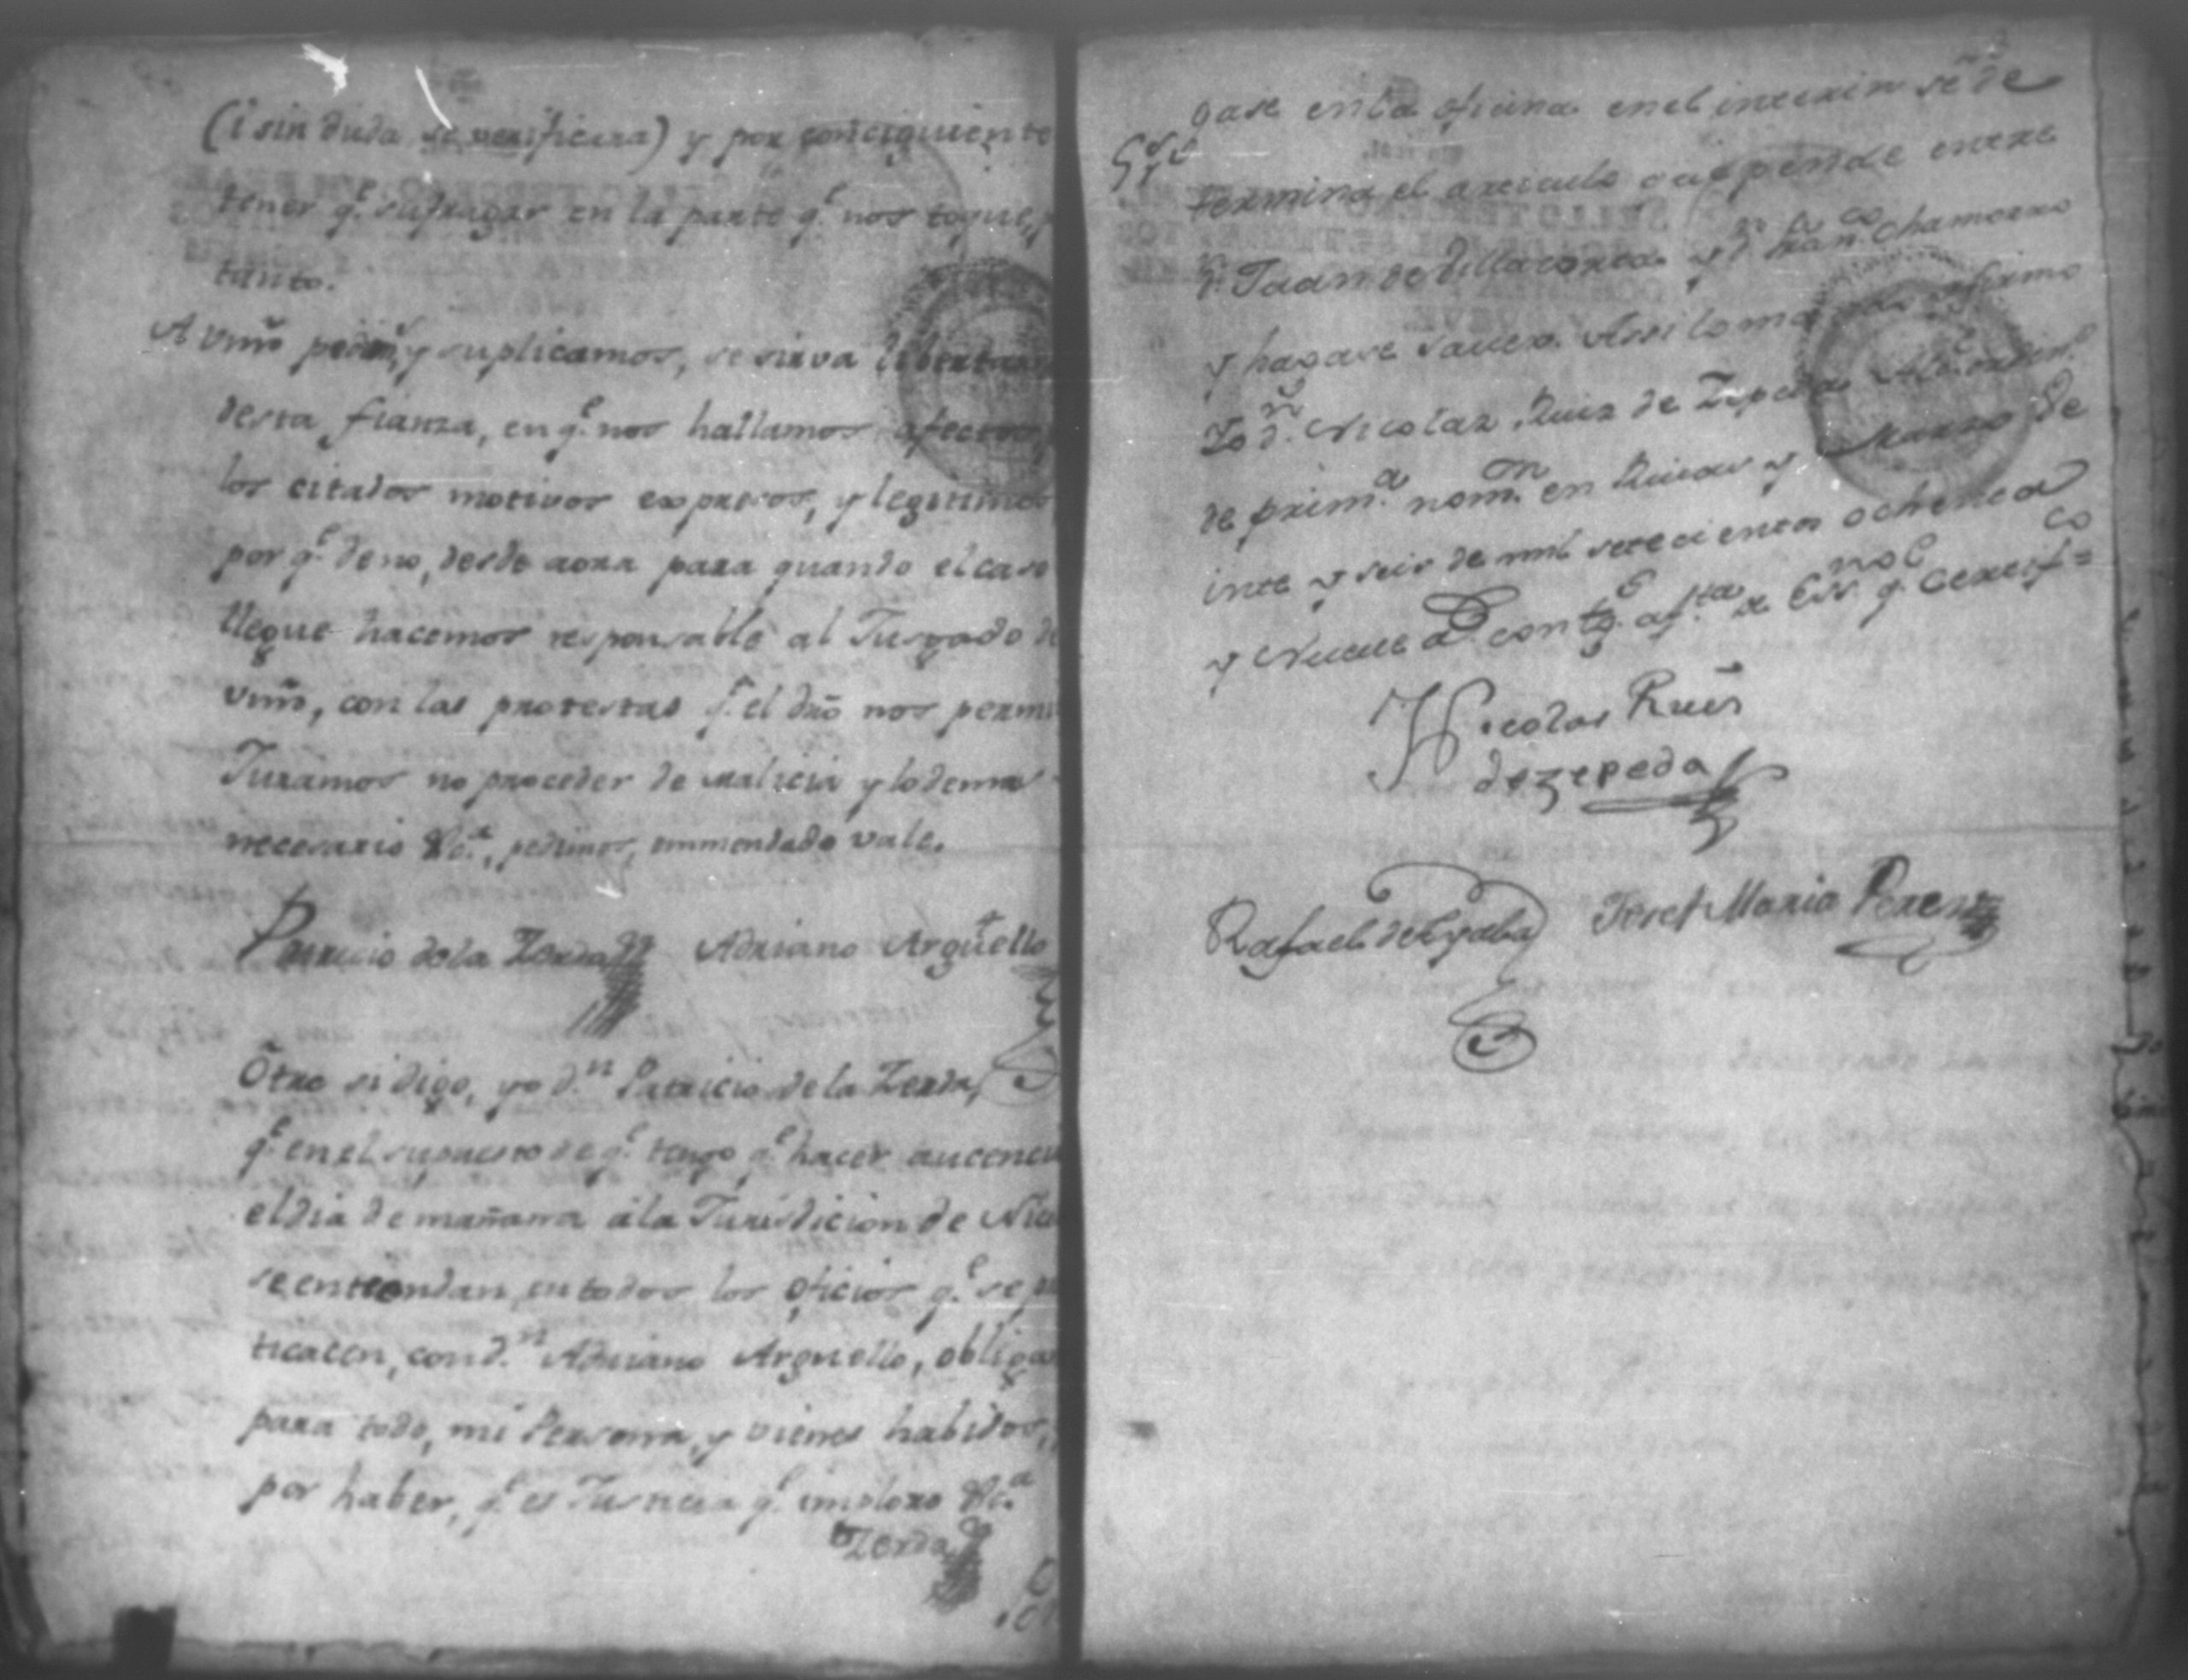 (i sin duda se verificara) y por conciguiente
tener q.e sufragar en la parte q.e nos toque,
tanto.
A vm̃ pedim.s y suplicamos, se sirva libertar
desta fianza, en q.e nos hallamos afectos,
los citados motivos expresos, y legitimos
por q.e deno, desde aora para quando el caso
llegue hacemos responsable al Jusgado
vm̃, con las protestas q.e el dro̅ nos permi
Juramos no proceder de malicia y lo demas
necesario &c.a, pedimos, emmendado vale.
Patricio de la Zerda Adriano Arguello
Otro si digo, yo d.n Patricio de la Zerda,
q.e en el supuesto de q.e tengo q.e hacer aucencia
el dia de mañana a la Jurisdicion de Nica
se entiendan, en todos los oficios q.e se
ticacen, con d.n Adriano Arguello, obligo
para todo, mi Persona, y vienes habidos,
por haber, q.e es Justicia q.e imploro &c.a
Zerda
gase en la oficina en el interin se de
termina el articulo que pende entre
d.n Juan de Villacorta y d.n Fran.co Chamorro
y hagase saver. Assi lo
Yo d.n Nicolas Ruiz de Zepeda Alc.e ordin.
de prim.a nom.on en Rivas y Marzo Ve
inte y seis de mil setecientos ochenta
y Nueve a
Nicolas Ruis
de zepeda
Rafael de Josef Maria Perez